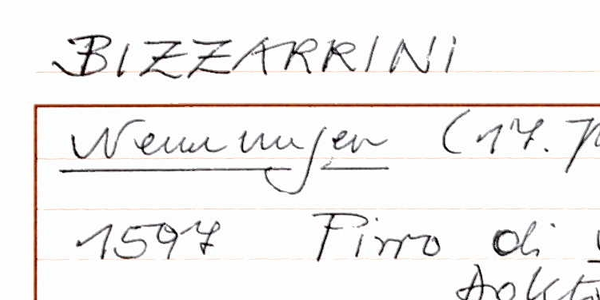 BIZZARRINI
Nennungen (17.
1597 Pirro di